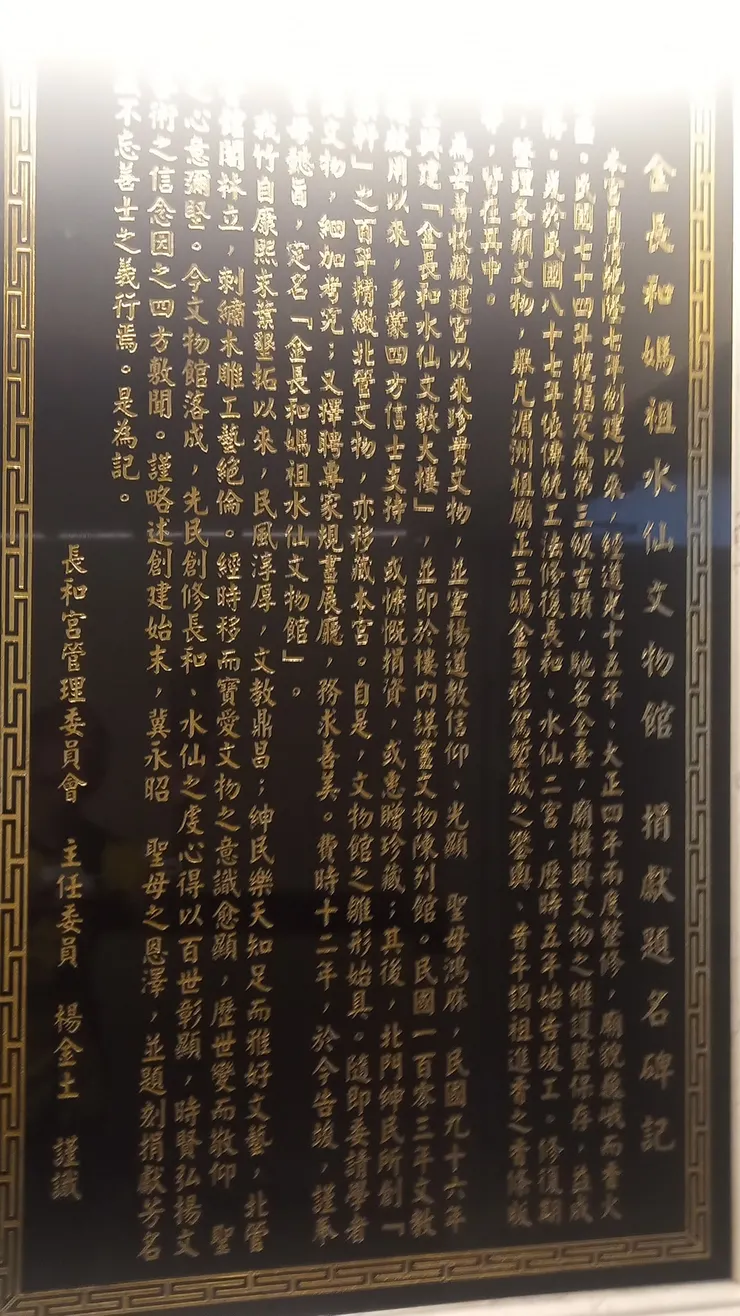 金長和媽祖水仙文物館 捐獻題名碑記
本宮自清乾隆七年創建以來，經道光十五年、大正四年兩度整修，廟貌巍峨而香火
。民國七十四年獲指定為第三級古蹟，馳名全臺，廟構與文物之維護暨保存，益成
。爰於民國八十七年依傳統工法修復長和、水仙二宮，歷時五年始告竣工。修復期
，整理各類文物，舉凡湄洲祖廟正三媽金身移駕塹城之鑾輿、昔年謁祖進香之香條版
，皆在其中。
為妥善收藏建宮以來珍貴文物，並宣揚道教信仰、光顯 聖母鴻庥，民國九十六年
興建「金長和水仙文教大樓」，並即於樓內謀畫文物陳列館。民國一百零三年文教
啟用以來，多蒙四方信士支持，或慷慨捐資，或惠贈珍藏；其後，北門紳民所創「
軒」之百年精緻北管文物，亦移藏本宮。自是，文物館之雛形始具。隨即委請學者
文物，細加考究；又擇聘專家規畫展廳，務求善美。費時十二年，於今告竣，謹奉
母懿旨，定名「金長和媽祖水仙文物館」。
我竹自康熙末葉墾拓以來，民風淳厚，文教鼎昌；紳民樂天知足而雅好文藝，北管
館閣林立，刺繡木雕工藝絕倫。經時移而寶愛文物之意識愈顯，歷世變而敬仰 聖
之心意彌堅。今文物館落成，先民創修長和、水仙之虔心得以百世彰顯，時賢弘揚文
術之信念因之四方敷聞。謹略述創建始末，冀永昭 聖母之恩澤，並題刻捐獻芳名
不忘善士之義行焉。是為記。
長和宮管理委員會 主任委員 楊金土 謹識